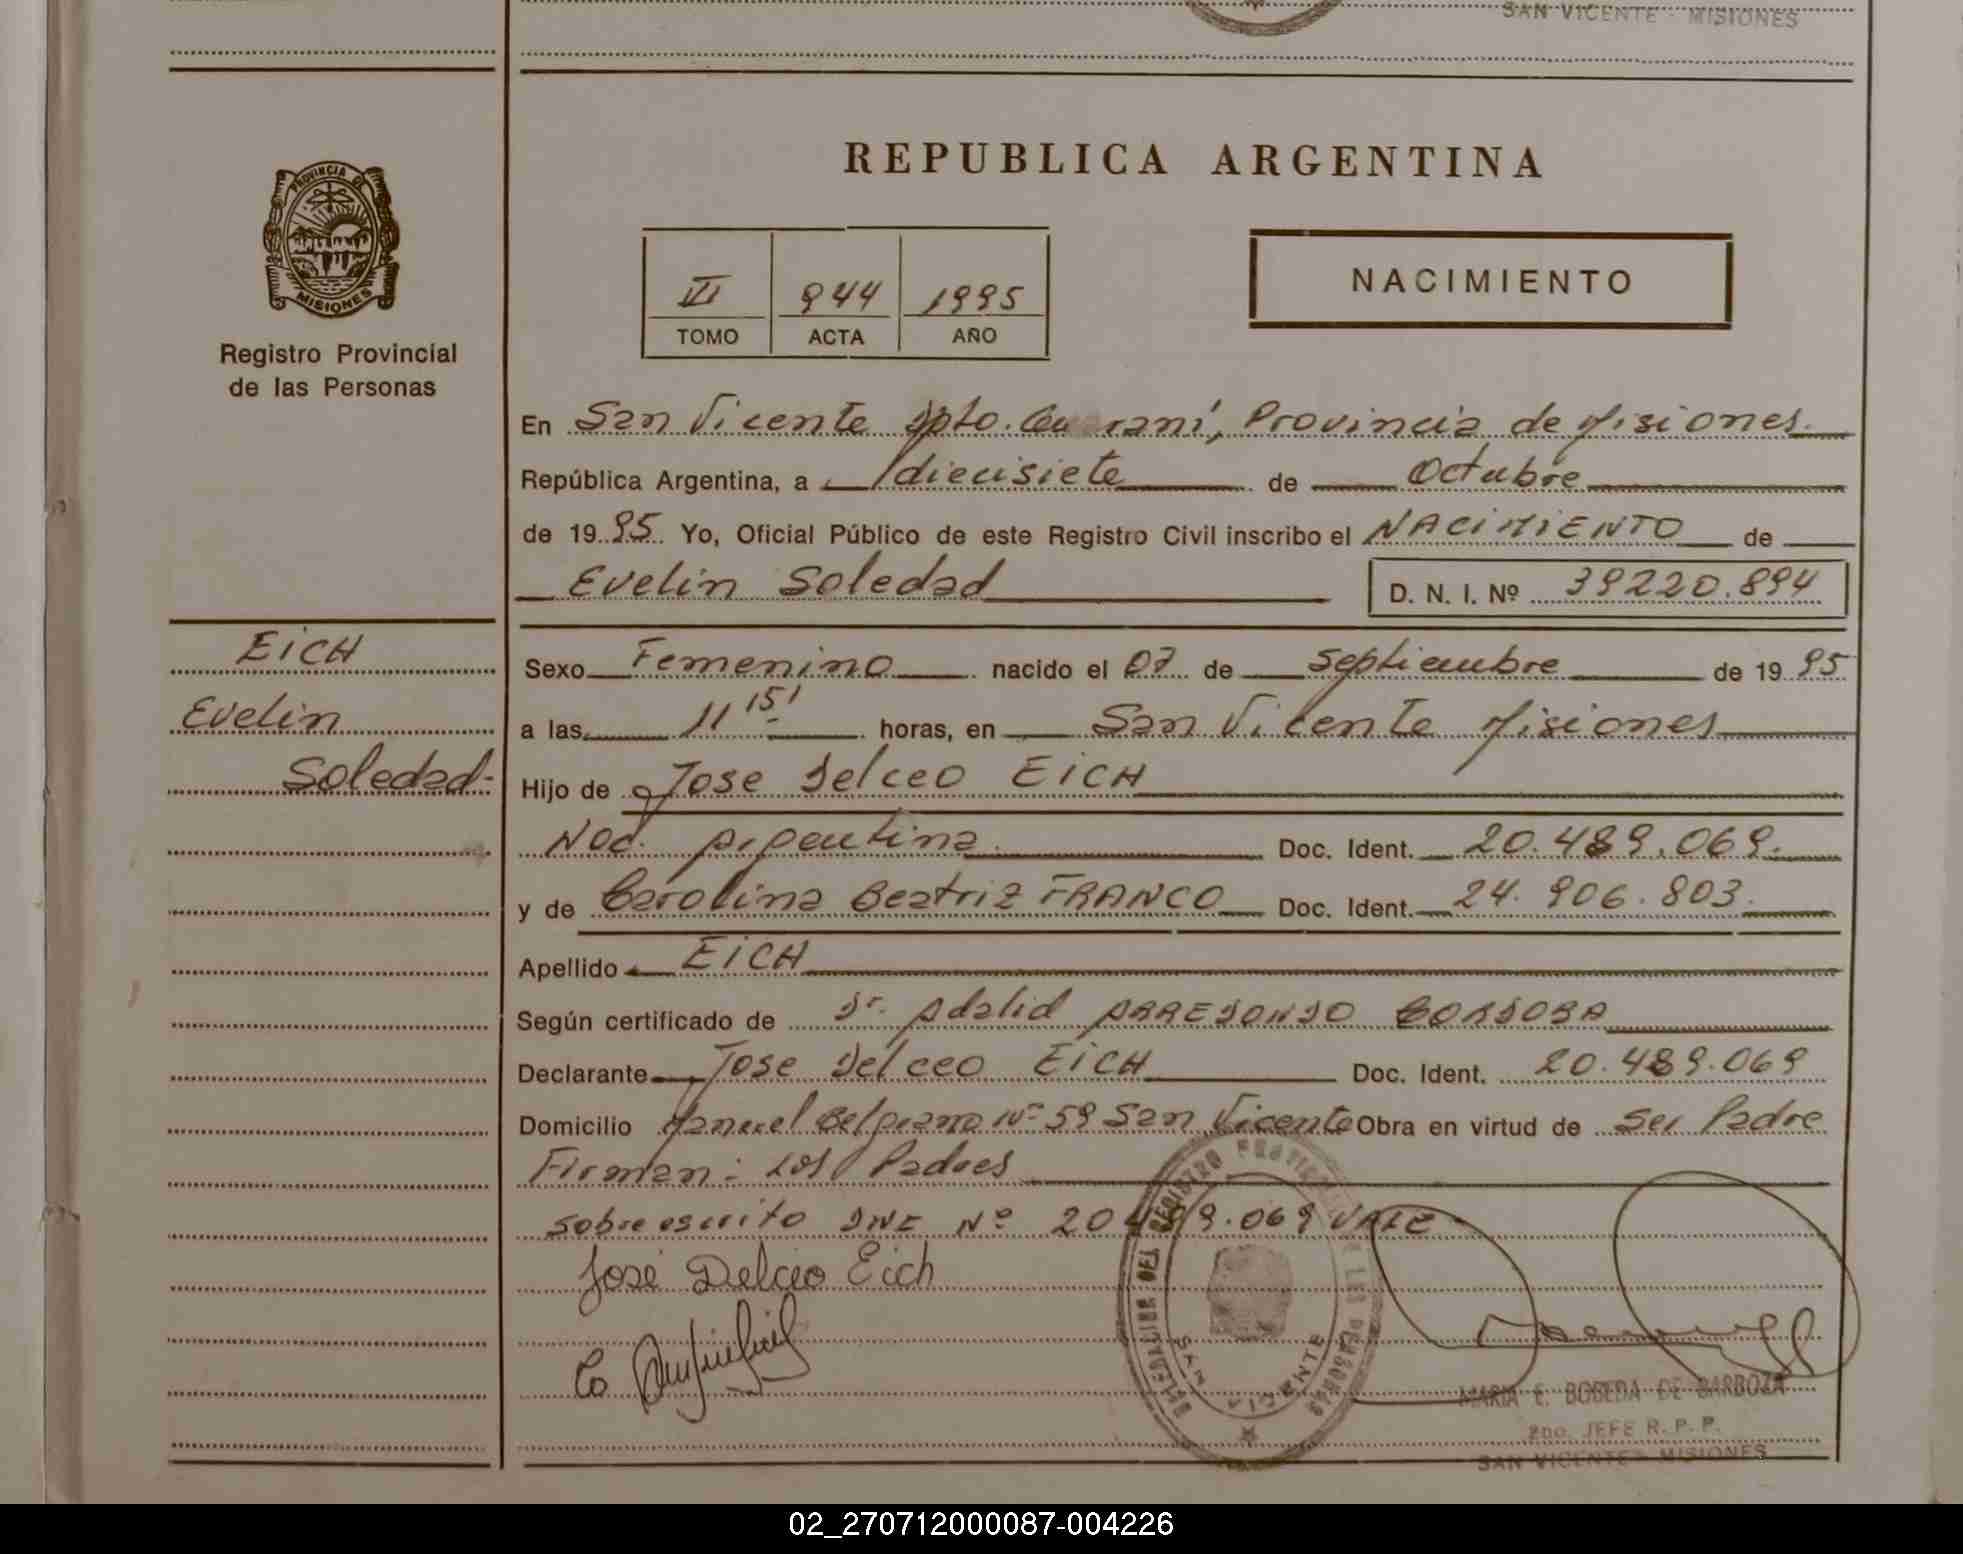 SAN VICENTE - MISIONES
REPUBLICA ARGENTINA
PROVINCIA DE
MISIONES
Registro Provincial
de las Personas
VI 944 1995
TOMO ACTA AÑO
NACIMIENTO
En San Vicente Dpto. Guaraní, Provincia de Misiones.
República Argentina, a diecisiete de Octubre
de 1995 Yo, Oficial Público de este Registro Civil inscribo el NACIMIENTO de
Evelin Soledad D. N. I. Nº 39220.894
EiCH
Evelin
Soledad-
Sexo Femenino nacido el 07 de Septiembre de 1995
a las 11 15' horas, en San Vicente Misiones
Hijo de Jose Delceo EiCH
Nac. Argentina Doc. Ident. 20.489.069.
y de Carolina Beatriz FRANCO Doc. Ident. 24.906.803.
Apellido EiCH
Según certificado de Dr. Adalid ARREDONDO CORDOBA
Declarante Jose Delceo EiCH Doc. Ident. 20.489.069
Domicilio Manuel Belgrano Nº 59 San Vicente Obra en virtud de Ser Padre
Firman: Los Padres
Sobre escrito DNI Nº 20.489.069 VALE
José Delcio Eich
MARIA E. BOBEDA DE BARBOZA
2DO. JEFE R. P. P.
SAN VICENTE - MISIONES
02_270712000087-004226